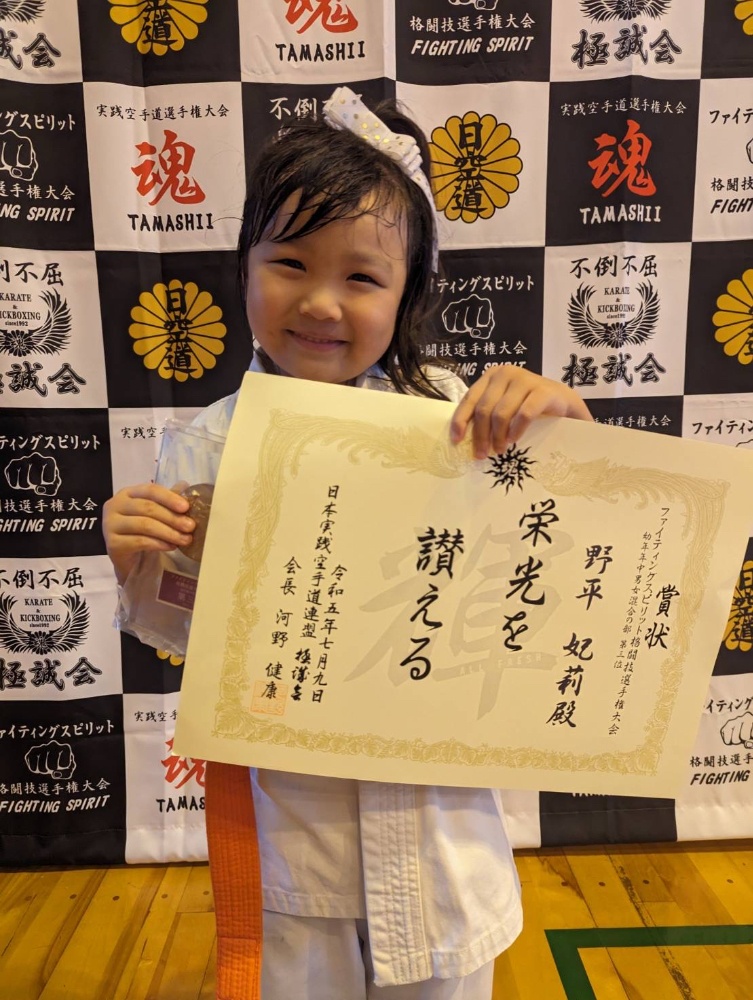 賞状
ファイティングスピリット格闘技選手権大会
幼年年中男女混合の部 第三位
野平 妃莉殿
栄光を
讃える
輝
令和五年七月九日
日本実践空手道連盟 極誠会
会長 河野健康
極誠会
FIGHTING SPIRIT
魂
TAMASHII
格闘技選手権大会
FIGHTING SPIRIT
極誠会
ファイティングスピリット
格闘技選手権大会
FIGHTING SPIRIT
実践空手道選手権大会
魂
TAMASHII
不倒不屈
実践空手道選手権大会
魂
TAMASHII
ファイティング
格闘技選手
FIGHTING
不倒不屈
KARATE
&
KICKBOXING
since1992
極誠会
ファイティングスピリット
格闘技選手権大会
FIGHTING SPIRIT
不倒不屈
KARATE
&
KICKBOXING
since1992
極誠会
ファイティングスピリット
格闘技選手権大会
FIGHTING SPIRIT
不倒不屈
KARATE
&
KICKBOXING
since1992
極誠会
ファイティングスピリット
格闘技選手権大会
FIGHTING SPIRIT
格闘技選手
FIGHTING SPIRIT